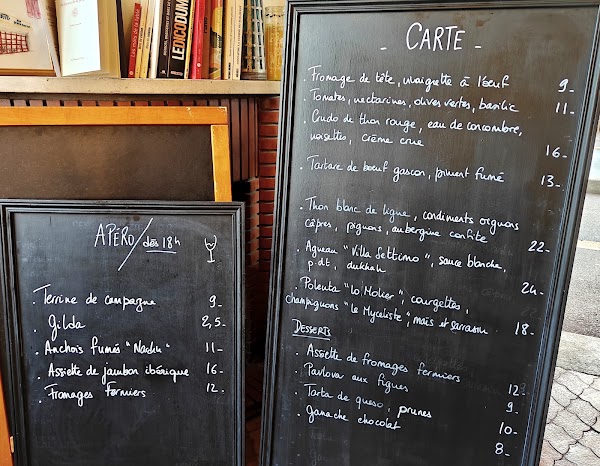 LEDICODUM
APÉRO / dès 18h
. Terrine de campagne 9-
. Gilda 2,5-
. Anchois fumés 11-
. Assiette de jambon ibérique 16-
. Fromages fermiers 12-
- CARTE -
. Fromage de tête, vinaigrette à l'oeuf 9-
. Tomates, nectarines, olives vertes, basilic 11-
. Crudo de thon rouge, eau de concombre,
noisettes, crème crue 16-
. Tartare de boeuf gascon, piment fumé 13-
. Thon blanc de ligne, condiments oignons
câpres, pignons, aubergine confite 22-
. Agneau "Villa Settimo", sauce blanche,
p.dt, dukkah 24-
. Polenta "lo Molier", courgettes,
champignons "le Myceliste", maïs et sarrasin 18-
DESSERTS
. Assiette de fromages fermiers 12-
. Pavlova aux figues 9-
. Tarta de queso, prunes 10-
. ganache chocolat 8-